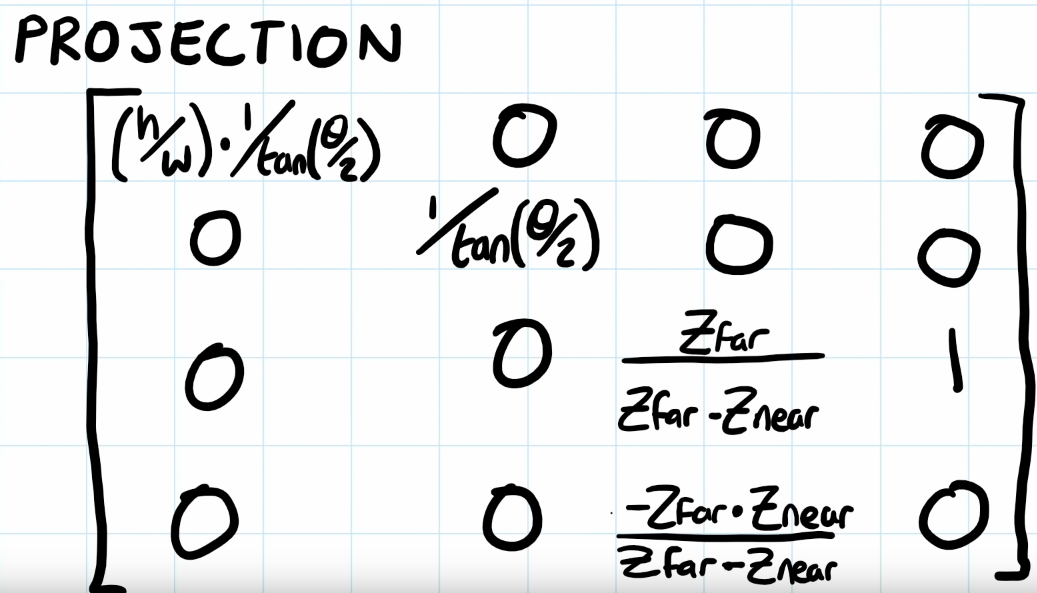 PROJECTION
(h/w)·1/tan(θ/2) 0 0 0
0 1/tan(θ/2) 0 0
0 0 Zfar/Zfar-Znear 1
0 0 -Zfar·Znear/Zfar-Znear 0